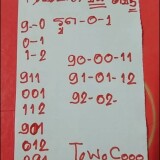 9-0 รูด-0-1
0-1
1-2
90-00-11
911 91-01-12
001 92-02-
112
901
012